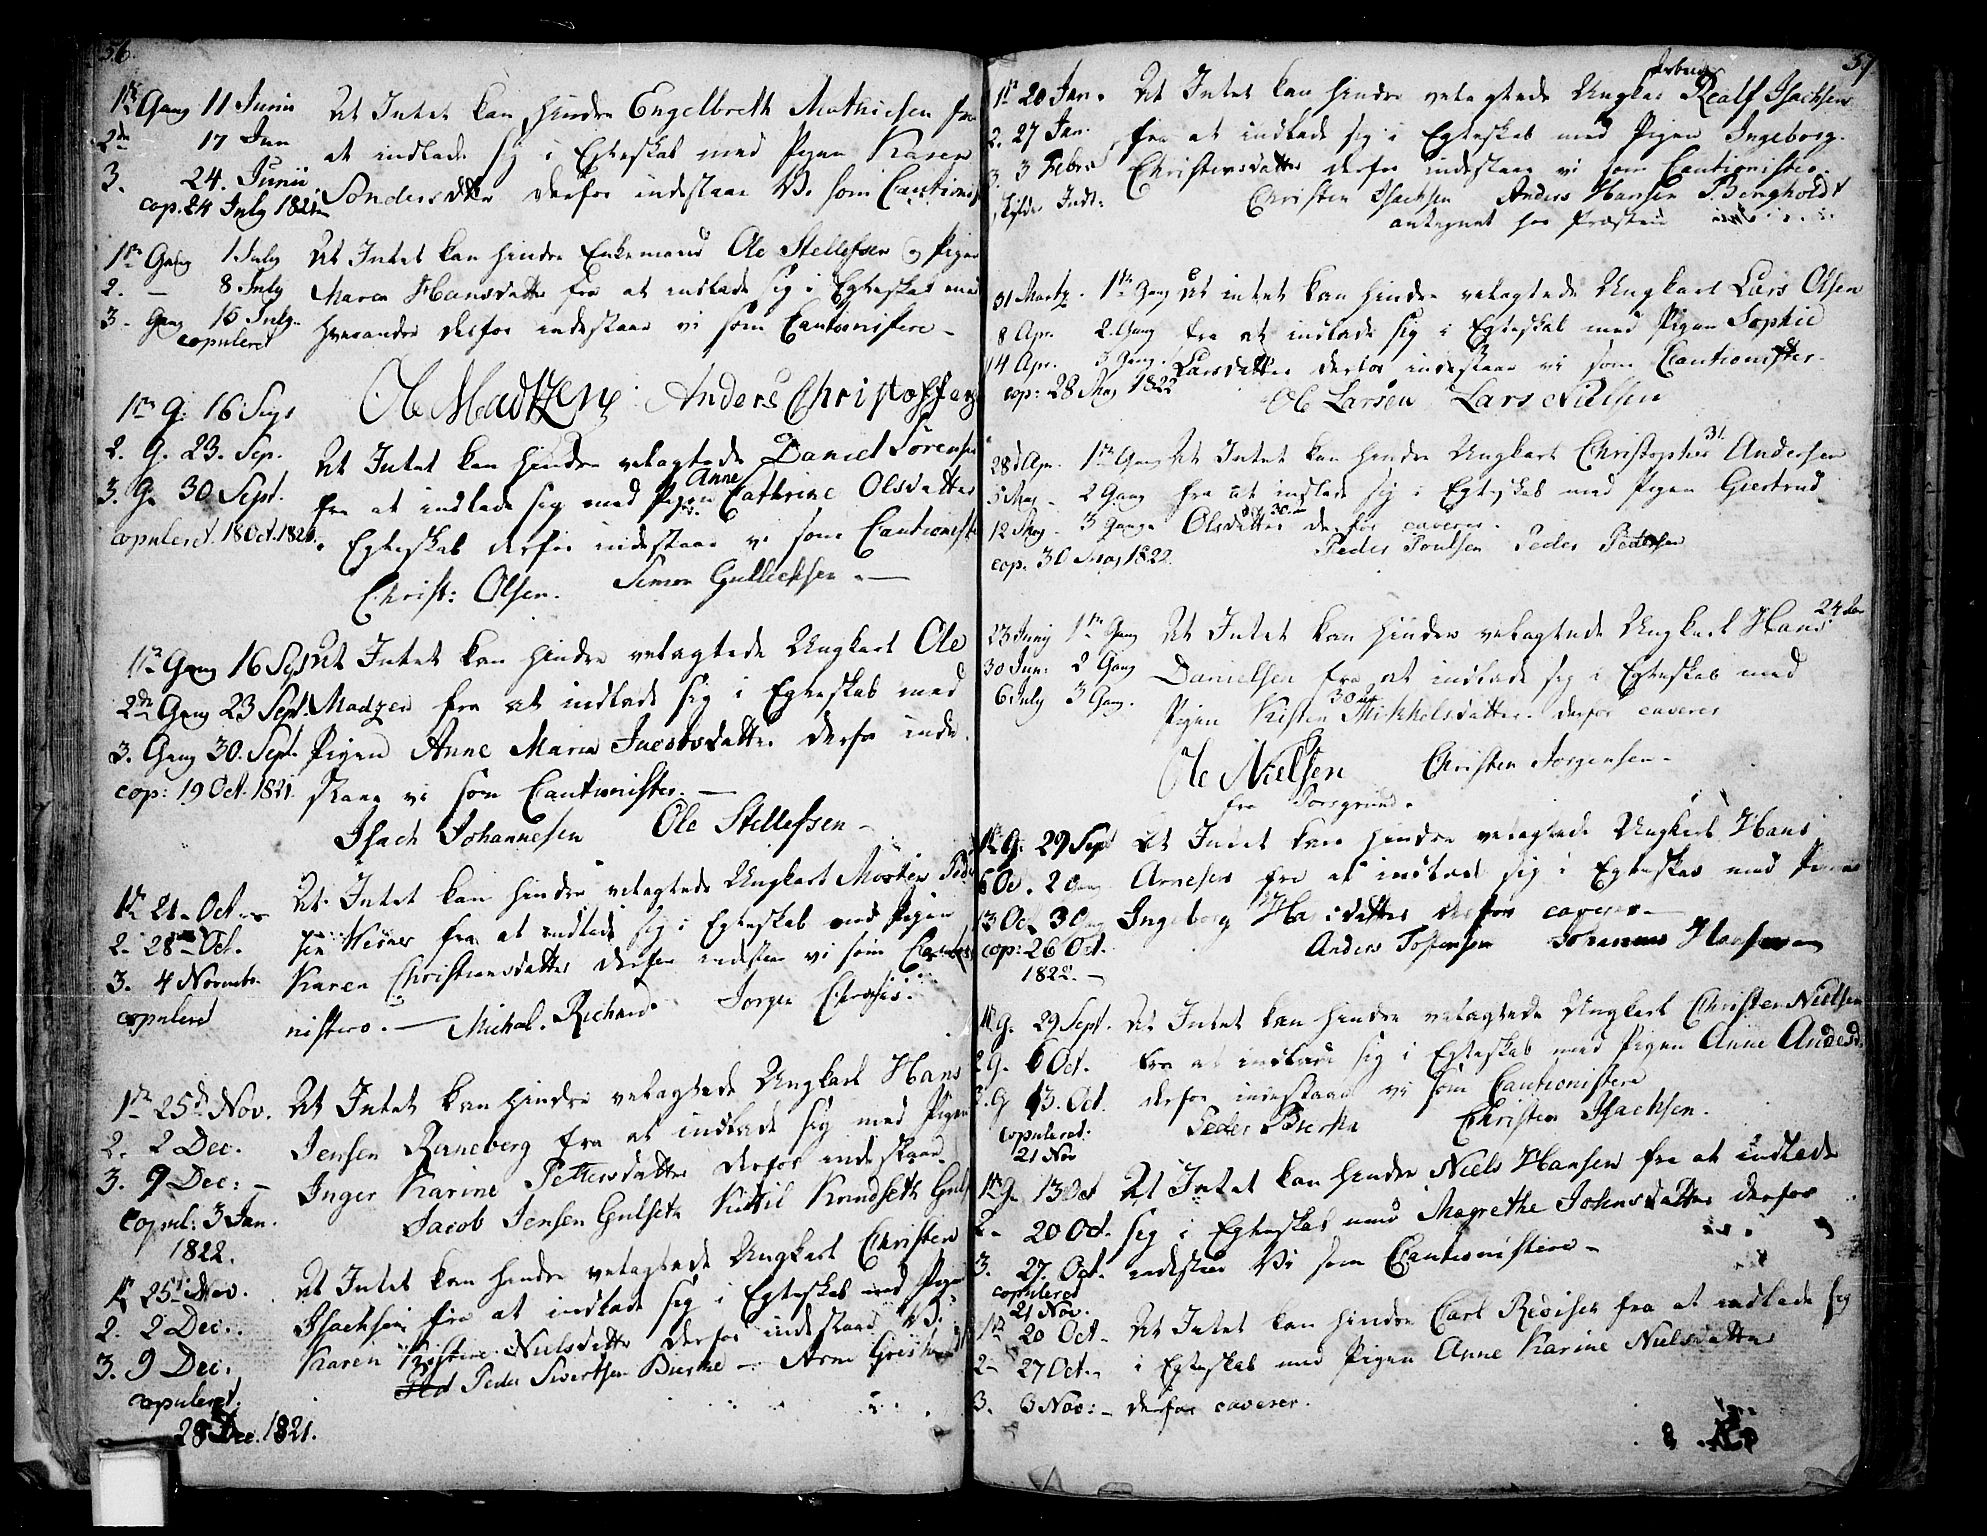 56.
1ste Gang 11 Junii At Intet kan hindre Engelbreth Mathiesen fra
2de 17 Jun at indlade sig i Egteskab med Pigen Karen
3. 24. Junii Sondersdatter derfor indestaae Vi som Cautionist
cop. 24 July 1821
1ste Gang 1 July At Intet kan hindre Enkemand Ole Stellefsen og Pigen
2. – 8 July Maren Hansdatter fra at indlade sig i Egteskab med
3 – Gang 15 July hverandre derfor indestaae vi som Cautionistere –
copuleret
Ole Madtzen Anders Christophersen
1ste G. 16 Sept
2. G. 23. Sep. At Intet kan hindre velagtede Daniel Sørensen
3. G. 30 Sept. fra at indlade sig med Pigen Anne Cathrine Olsdatter
copuleret 18 Oct. 1821. i Egteskab derfor indestaae vi som Cautionister
Christ: Olsen. Simon Gullichsen. –
1ste Gang 16 Sept At Intet kan hindre velagtede Ungkarl Ole
2de Gang 23 Sept. Madzen fra at indlade sig i Egteskab med
3. Gang 30. Sept. Pigen Anne Maria Jacobsdatter derfor inde-
cop: 19 Oct. 1821. staae vi som Cautionister. –
Isach Johannesen Ole Stellefsen –
1ste 21. Oct. At Intet kan hindre velagtede Ungkarl Morten
2. 28de Oct. fra at indlade sig i Egteskab med Pigen
3. 4 Novemb. Karen Christensdatter derfor indestaae vi som Cautio
copuleret nistere. – Michal. Richard Jørgen
1ste 25de Nov. At Intet kan hindre velagtede Ungkarl Hans
2. 2 Dec. Jensen Ranneberg fra at indlade sig med Pigen
3. 9 Dec: – Inger Karine Pettersdatter derfor indestaae
copul: 3 Jan. Jacob Jensen Gulseth Kittil Knudseth
1822.
1ste 25de Nov. At Intet kan hindre velagtede Ungkarl Christen
2. 2 Dec. Isachsen fra at indlade sig i Egteskab med Pigen
3. 9 Dec. Karen Kirstine Nielsdatter derfor indestaae Vi
copuleret. Peder Sivertsen – Arne
28 Dec. 1821.
57
1ste 20 Jan. At Intet kan hindre velagtede Ungkarl Realf Isachsen
2. 27 Jan. fra at indlade sig i Egteskab med Pigen Ingeborg
3. 3 Febr. Christensdatter derfor indestaae vi som Cautionister.
Christen Isachsen Anders Hansen Bergholdt
antegnet hos Præsten
31 Martz. 1ste Gang At intet kan hindre velagtede Ungkarl Lars Olsen
8 Apr. 2. Gang fra at indlade sig i Egteskab med Pigen Sophie
14 Apr. 3 Gang. Larsdatter derfor indestaae vi som Cautionister.
cop: 28 May 1822 Ole Larsen Lars Nielsen
31.
28de Apr. 1ste Gang At Intet kan hindre Ungkarl Christopher Andersen
5 May – 2 Gang fra at indlade sig i Egteskab med Pigen Giertrud
12 May – 3 Gang Olsdatter 30 derfor caverer.
cop. 30 May 1822. Peder Poulsen Peder Pedersen
23 Junij 1ste Gang At Intet kan hindre velagtede Ungkarl Hans 24 Aar
30 Jun: 2 Gang Danielsen fra at indlade sig i Egteskab med
6 July 3 Gang. Pigen Kirsten 30 Aar Mikkelsdatter derfor caverer
Ole Nielsen Christen Jørgensen –
fra Porsgrund.
1ste G. 29 Sept At Intet kan hindre velagtede Ungkarl Hans
6 Oc. 2 Gang Arnesen fra at indlade sig i Egteskab med Pigen
13 Oct 3 Gang Ingeborg Hansdatter derfor caverer –
cop: 26 Oct. Anders Johannes Hansen
1822. –
1ste G. 29 Sept. At Intet kan hindre velagtede Ungkarl Christen Nielsen
2 G. 6 Oct. fra at indlade sig i Egteskab med Pigen Anne Andersd
3. G 13. Oct. derfor indestaae vi som Cautionistere
copuleret: Peder Christen Isachsen.
21 Nov
1ste G. 13 Oct At Intet kan hindre Niels Hansen fra at indlade
2 – 20 Oct. sig i Egteskab med Magrethe Johnsdatter derfor
3. 27. Oct. indestaae Vi som Cautionistere –
copuleret
21 Nov.
1ste 20 Oct – At Intet kan hindre Carl fra at indlade sig
2 – 27 Oct. – i Egteskab med Pigen Anne Karine Nielsdatter
3. 3 Nov: – derfor caverer.